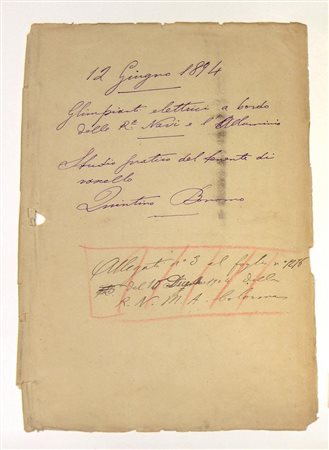 12 Giugno 1894
Gl'impianti elettrici a bordo
delle R.e Navi e l'Alluminio
Studio pratico del tenente di
vascello
Quintino Bonomo
Allegati n° 3 al foglio n°
del 10 della
R. N. M. A. Colonna